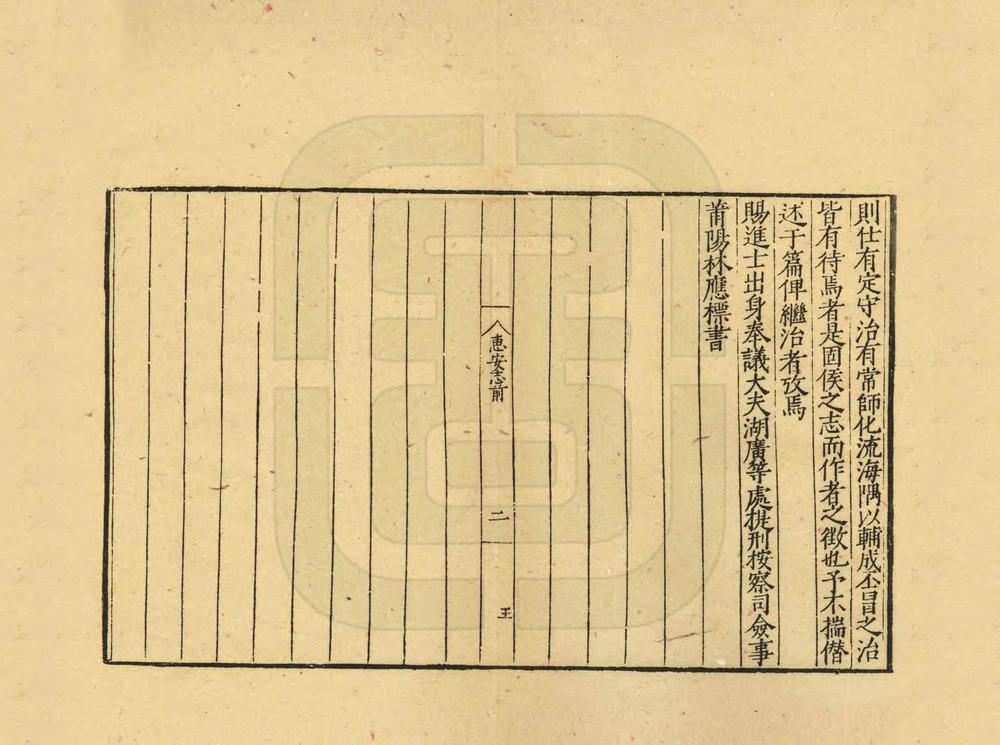 則仕有定守治有常師化流海隅以輔成丕冒之治
皆有待焉者是固侯之志而作者之徵也予不揣僣
述于篇俾繼治者攷焉
賜進士出身奉議大夫湖廣等處提刑按察司僉事
莆陽林應標書
惠安志前
二
王